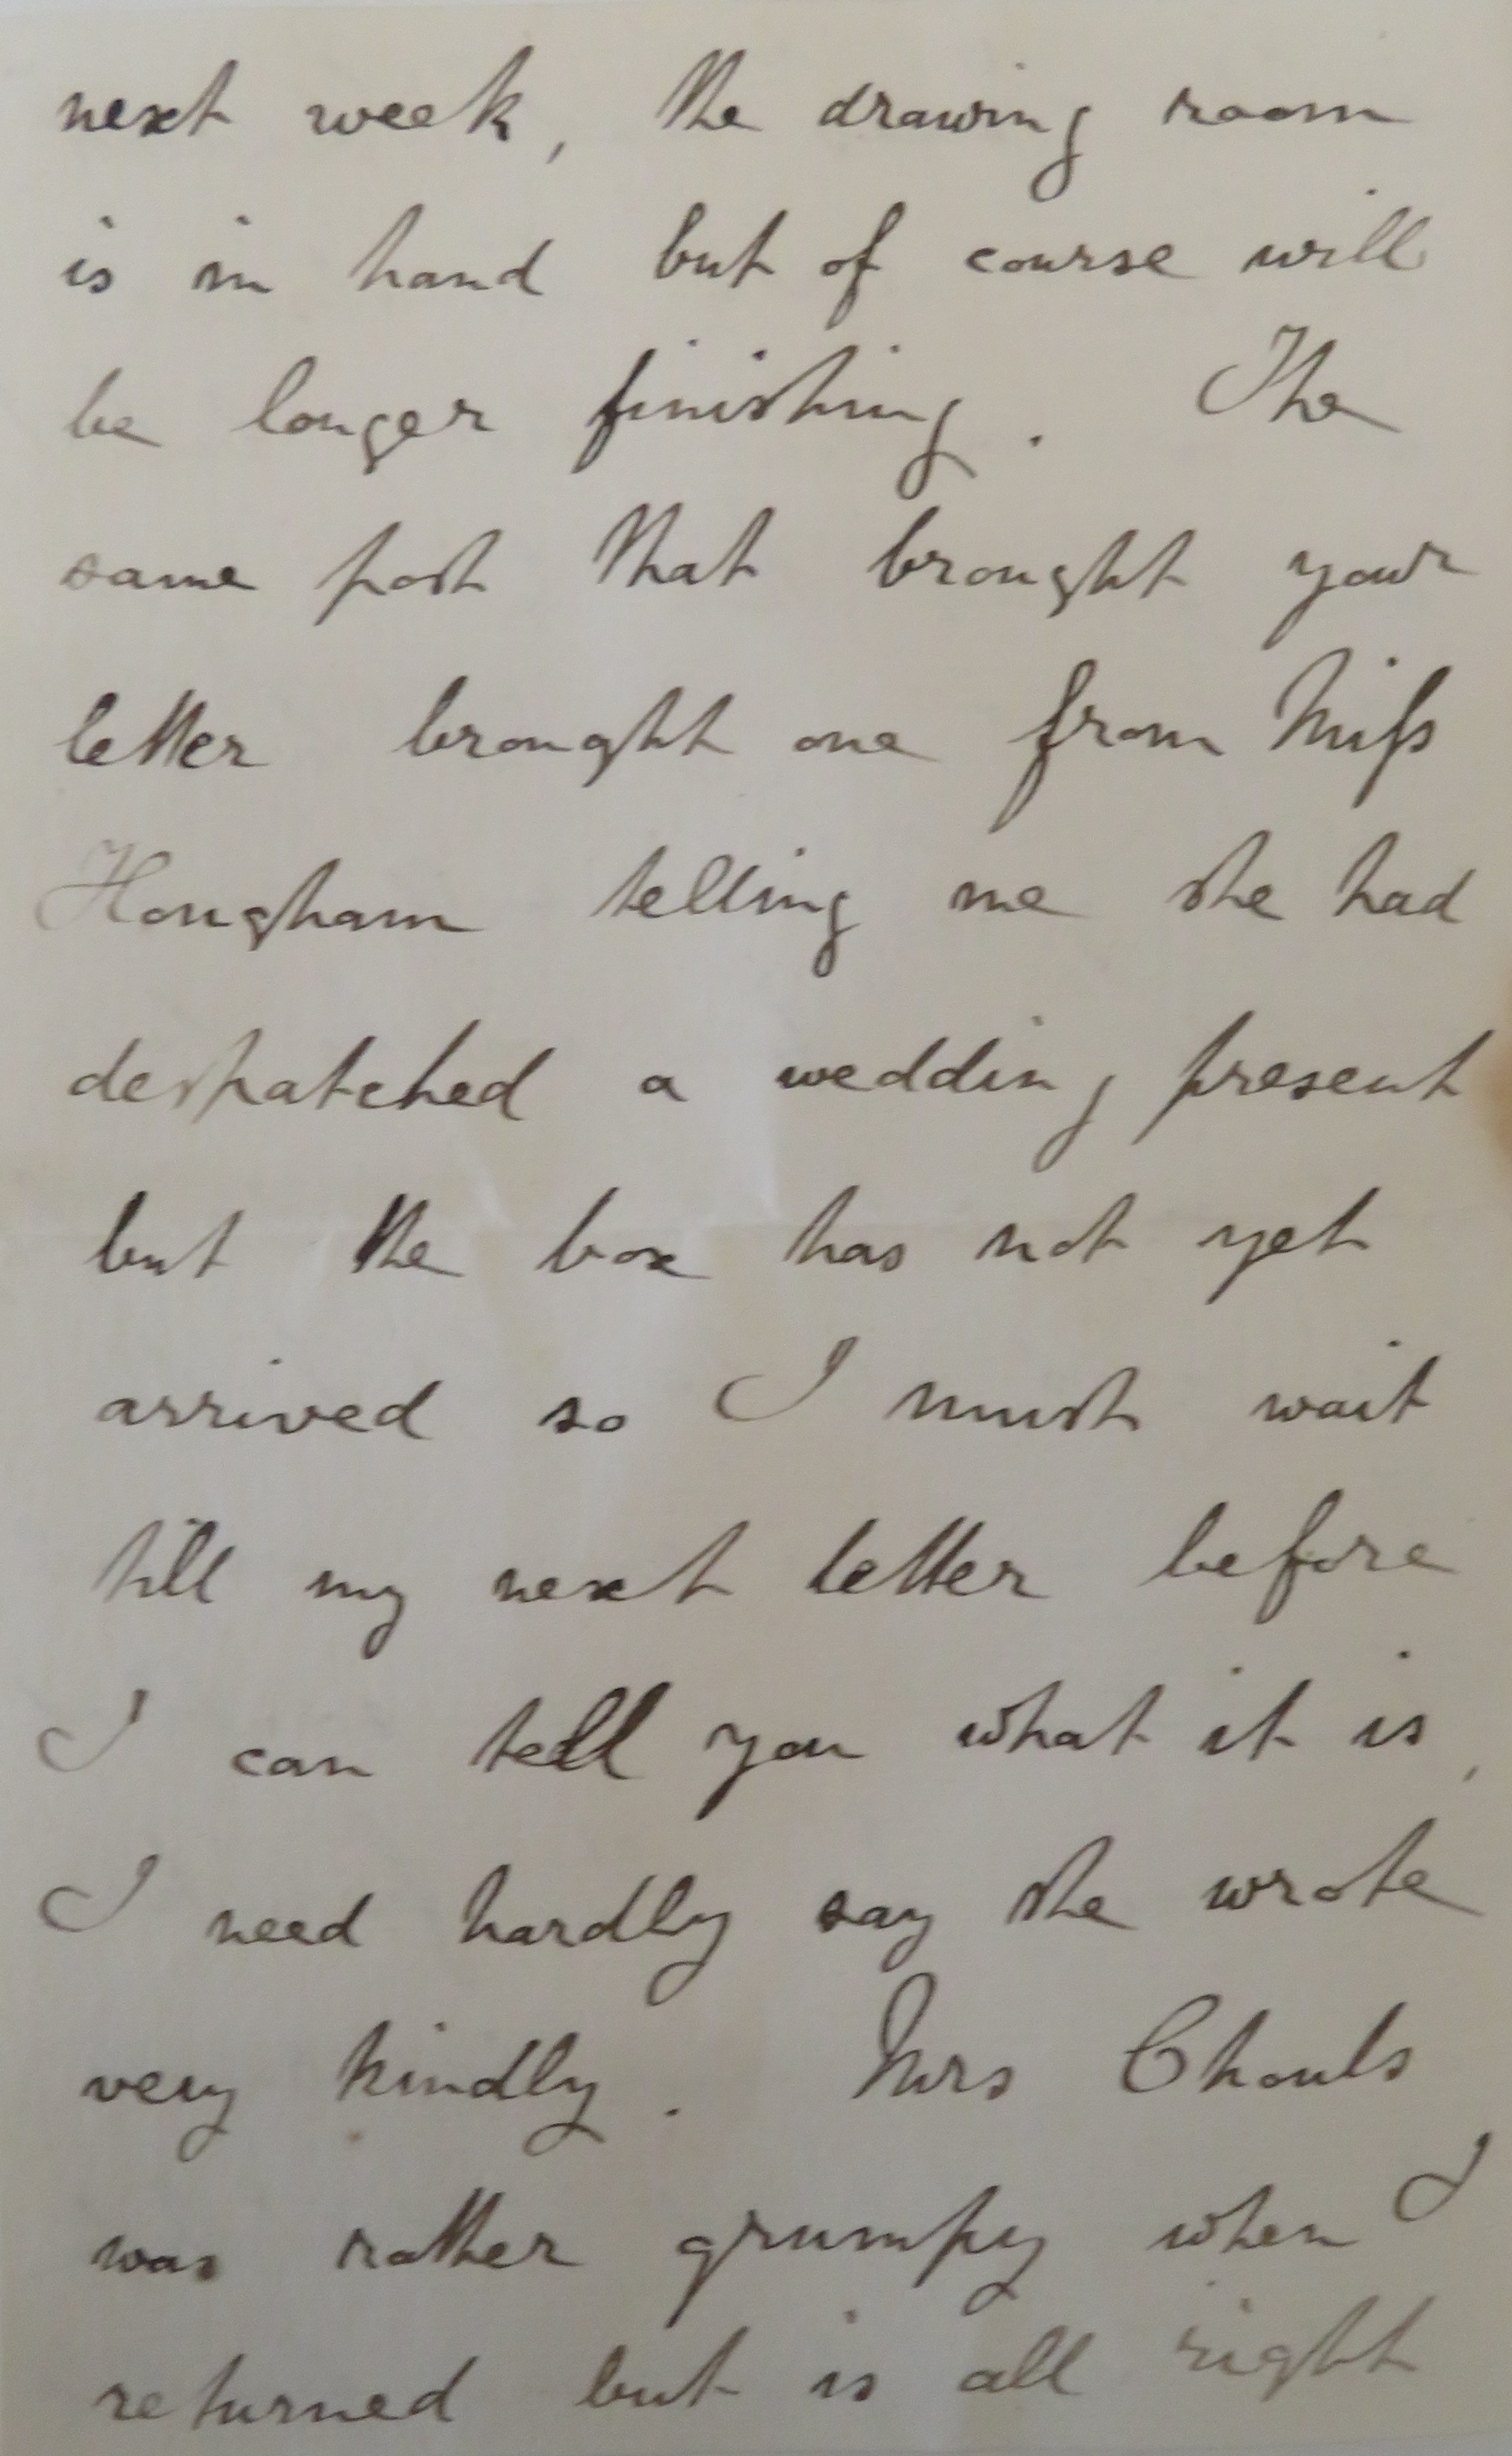 next week, the drawing room
is in hand but of course will
be longer finishing. The
same post that brought your
letter brought one from Miſs
Hougham telling me she had
despatched a wedding present
but the box has not yet
arrived so I must wait
till my next letter before
I can tell you what it is,
I need hardly say she wrote
very kindly. Mrs Chouls
was rather grumpy when I
returned but is all right